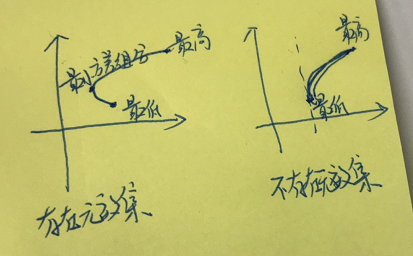 最高
最小方差组合
最低
存在无效集
最高
最低
不存在无效集